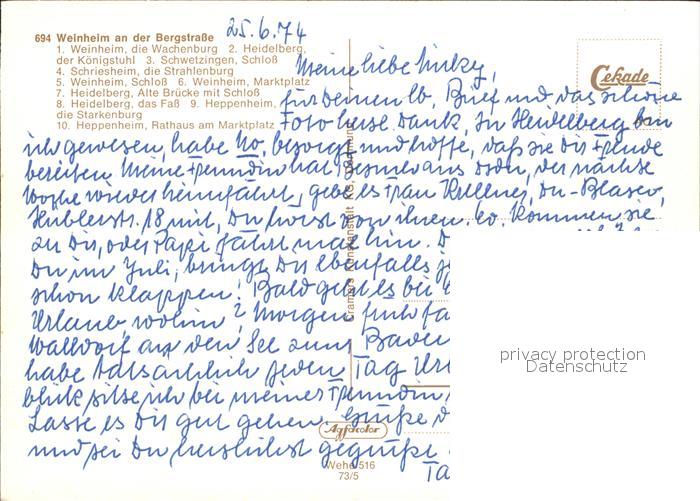 694 Weinheim an der Bergstraße
25.6.74
1. Weinheim, die Wachenburg 2. Heidelberg,
der Königstuhl 3. Schwetzingen, Schloß
4. Schriesheim, die Strahlenburg
5. Weinheim, Schloß 6. Weinheim, Marktplatz
7. Heidelberg, Alte Brücke mit Schloß
8. Heidelberg, das Faß 9. Heppenheim,
die Starkenburg
10. Heppenheim, Rathaus am Marktplatz
Cekade
Meine liebe
für Deinen lb. Brief und das schöne
Foto herzl. Dank, in Heidelberg bin
ich gewesen, habe besorgt und hoffe, daß sie Dir Freude
bereiten. Meine Freundin hat Besuch aus der nächste
Woche wieder heimfährt, gebe es Frau
18 mit, Du Kommen sie
zu Dir, oder Papi fährt mal hin.
Du im Juli, bringe Dir ebenfalls
schon klappen! Bald geht es bei
Urlaub, wohin? Morgen
Walldorf an den See zum Baden
habe tatsächlich jeden Tag
blick sitze ich bei meiner Freundin
Lasse es Dir gut gehen. Grüße
und sei Du herzlichst gegrüßt
Cramers Kunstanstalt KG, Dortmund
Agfacolor
Wehe 516
73/5
privacy protection
Datenschutz